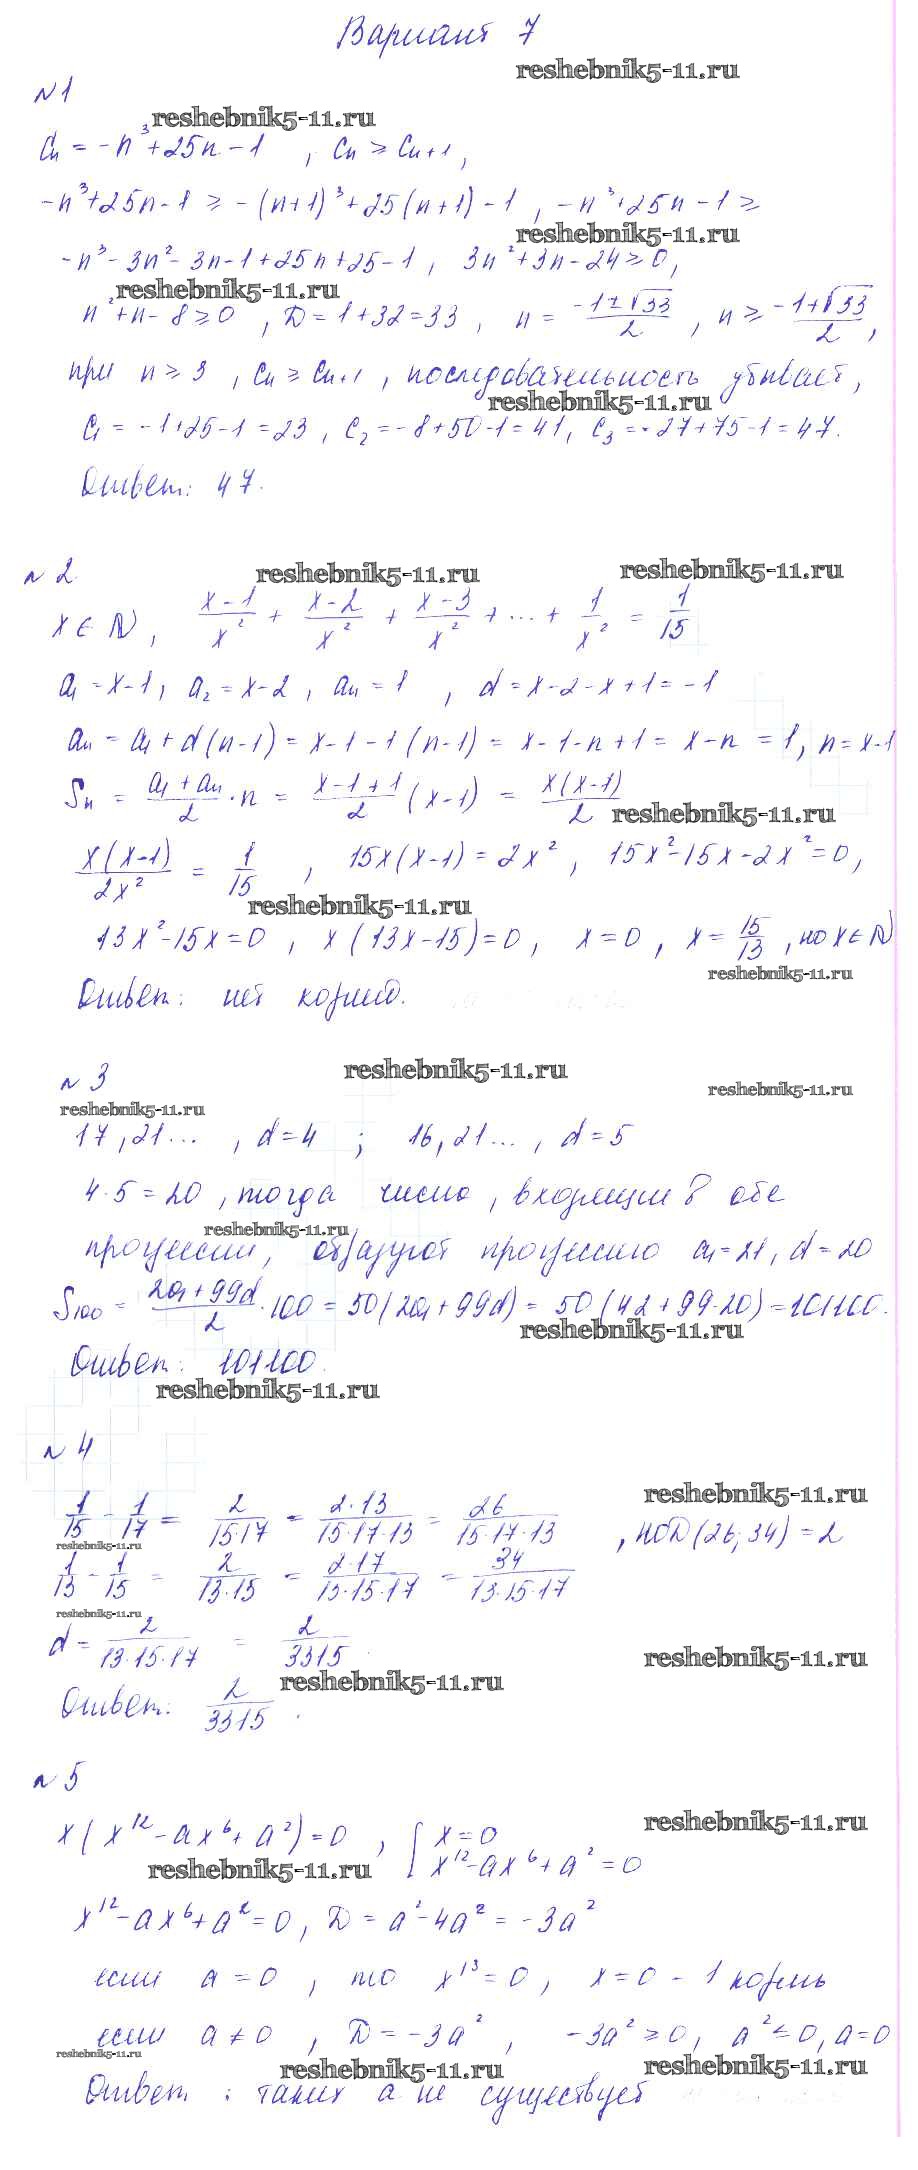 Вариант 7
reshebnik5-11.ru
№1
reshebnik5-11.ru
Cₙ = -n³+25n-1 , Cₙ ≥ Cₙ₊₁,
-n³+25n-1 ≥ -(n+1)³+25(n+1)-1 , -n³+25n-1 ≥
reshebnik5-11.ru
-n³-3n²-3n-1+25n+25-1 , 3n²+3n-24≥0,
reshebnik5-11.ru
n²+n-8≥0 , D=1+32=33 , n = (-1±√33)/2 , n ≥ (-1+√33)/2 ,
при n≥3 , Cₙ≥Cₙ₊₁ , последовательность убывает,
reshebnik5-11.ru
C₁ = -1+25-1=23 , C₂=-8+50-1=41, C₃=-27+75-1=47.
Ответ: 47.
№2
reshebnik5-11.ru
reshebnik5-11.ru
x∈N , (x-1)/x² + (x-2)/x² + (x-3)/x² + ... + 1/x² = 1/15
a₁=x-1, a₂=x-2, aₙ=1 , d=x-2-x+1=-1
aₙ=a₁+d(n-1)=x-1-1(n-1)=x-1-n+1=x-n=1, n=x-1
Sₙ = (a₁+aₙ)/2·n = (x-1+1)/2 (x-1) = x(x-1)/2
reshebnik5-11.ru
x(x-1)/2x² = 1/15 , 15x(x-1)=2x² , 15x²-15x-2x²=0,
reshebnik5-11.ru
13x²-15x=0 , x(13x-15)=0, x=0 , x=15/13 , но x∈N
reshebnik5-11.ru
Ответ: нет корней.
№3
reshebnik5-11.ru
reshebnik5-11.ru
reshebnik5-11.ru
17, 21... , d=4 ; 16, 21... , d=5
4·5=20 , тогда число, входящии в обе
reshebnik5-11.ru
прогрессии, образуют прогрессию a₁=21, d=20
S₁₀₀ = (2a₁+99d)/2·100 = 50(2a₁+99d) = 50(42+99·20)=101100.
reshebnik5-11.ru
Ответ: 101100.
reshebnik5-11.ru
№4
reshebnik5-11.ru
1/15 - 1/17 = 2/(15·17) = 2·13/(15·17·13) = 26/(15·17·13) , НОД(26; 34)=2
reshebnik5-11.ru
1/13 - 1/15 = 2/(13·15) = 2·17/(13·15·17) = 34/(13·15·17)
reshebnik5-11.ru
d = 2/(13·15·17) = 2/3315.
reshebnik5-11.ru
reshebnik5-11.ru
Ответ: 2/3315.
№5
reshebnik5-11.ru
x(x¹²-ax⁶+a²)=0 , [ x=0
x¹²-ax⁶+a²=0
reshebnik5-11.ru
x¹²-ax⁶+a²=0, D=a²-4a²=-3a²
если a=0 , то x¹³=0, x=0 - 1 корень
если a≠0 , D=-3a² , -3a²≥0, a²≤0, a=0
reshebnik5-11.ru
reshebnik5-11.ru
reshebnik5-11.ru
Ответ: таких a не существует